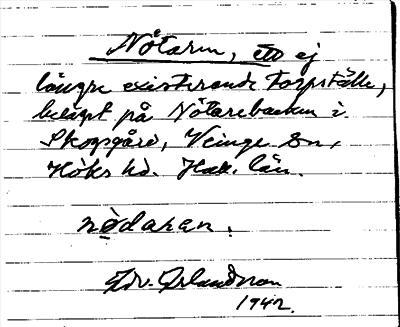 Nötaren, ett ej
längre existerande torpställe,
beläget på Nötarebacken i
Skogsgård, Veinge Sn,
Höks hd. Hall. län.
nödaran.
Edv. Erlandsson
1942.